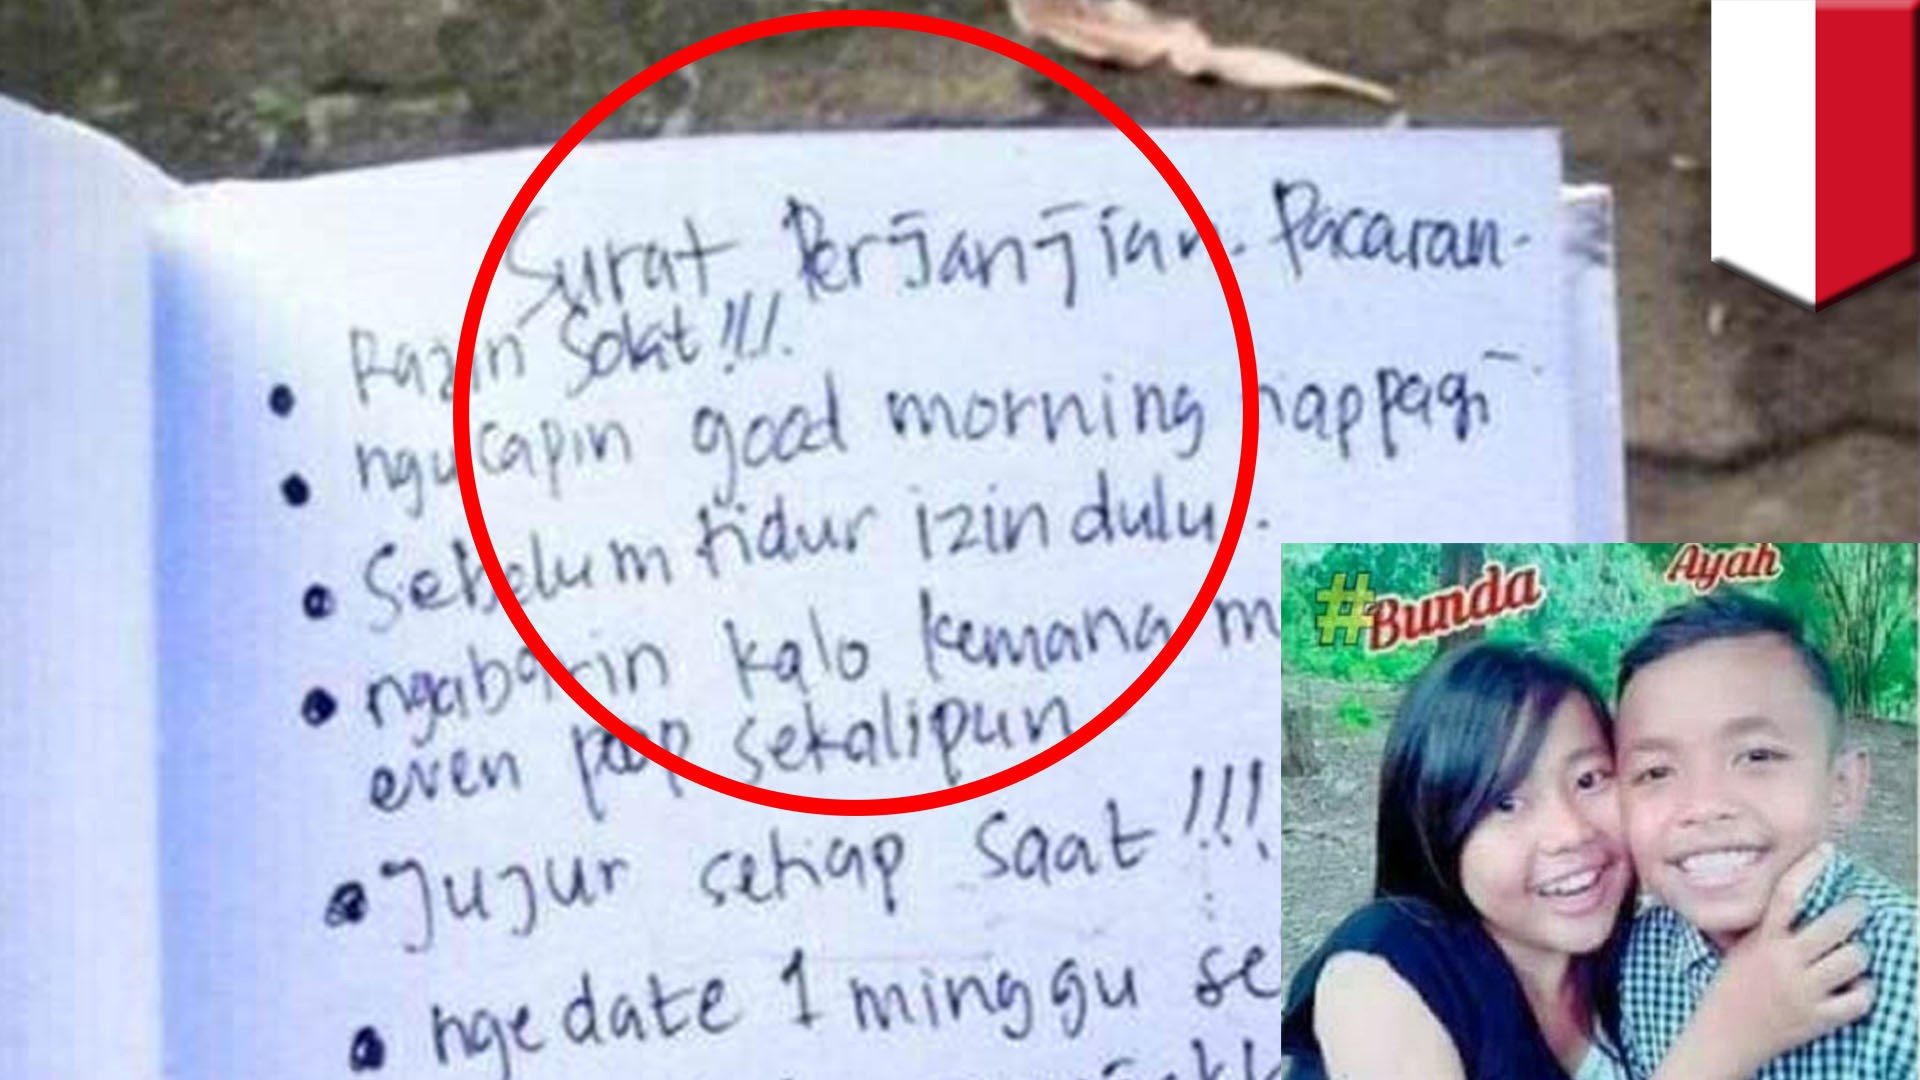 Surat Perjanjian Pacaran
Razin Solat!!!
ngucapin good morning tiap pagi
Sebelum tidur izin dulu.
ngabarin kalo kemana
even pap sekalipun
Jujur setiap saat!!!
ngedate 1 minggu se
#Bunda
Ayah